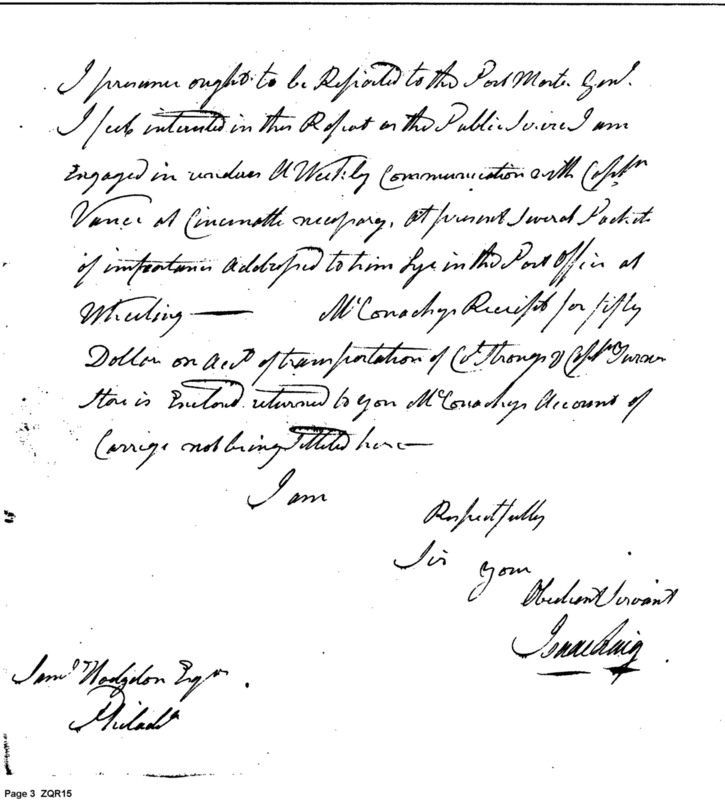 I presume ought to be Reported to the Post Master Genl.
I feel interested in this Report as the Public Service I am
Engaged in renders A Weekly Communication with Captn
Vance at Cincinnatti necessary, At present Several Packets
of importance Addressed to him Lye in the Post Office at
Wheeling — McConachys Receipt for fifty
Dollars on Acct of transportation of Col Strongs & Captn Turner
Store is Enclosed returned to you McConachys Account of
Carriage not being Settled here —
I am
Respectfully
Sir your
Obedient Servant
Isaac Craig
Saml Hodgdon Esqr.
Philada
Page 3 ZQR15